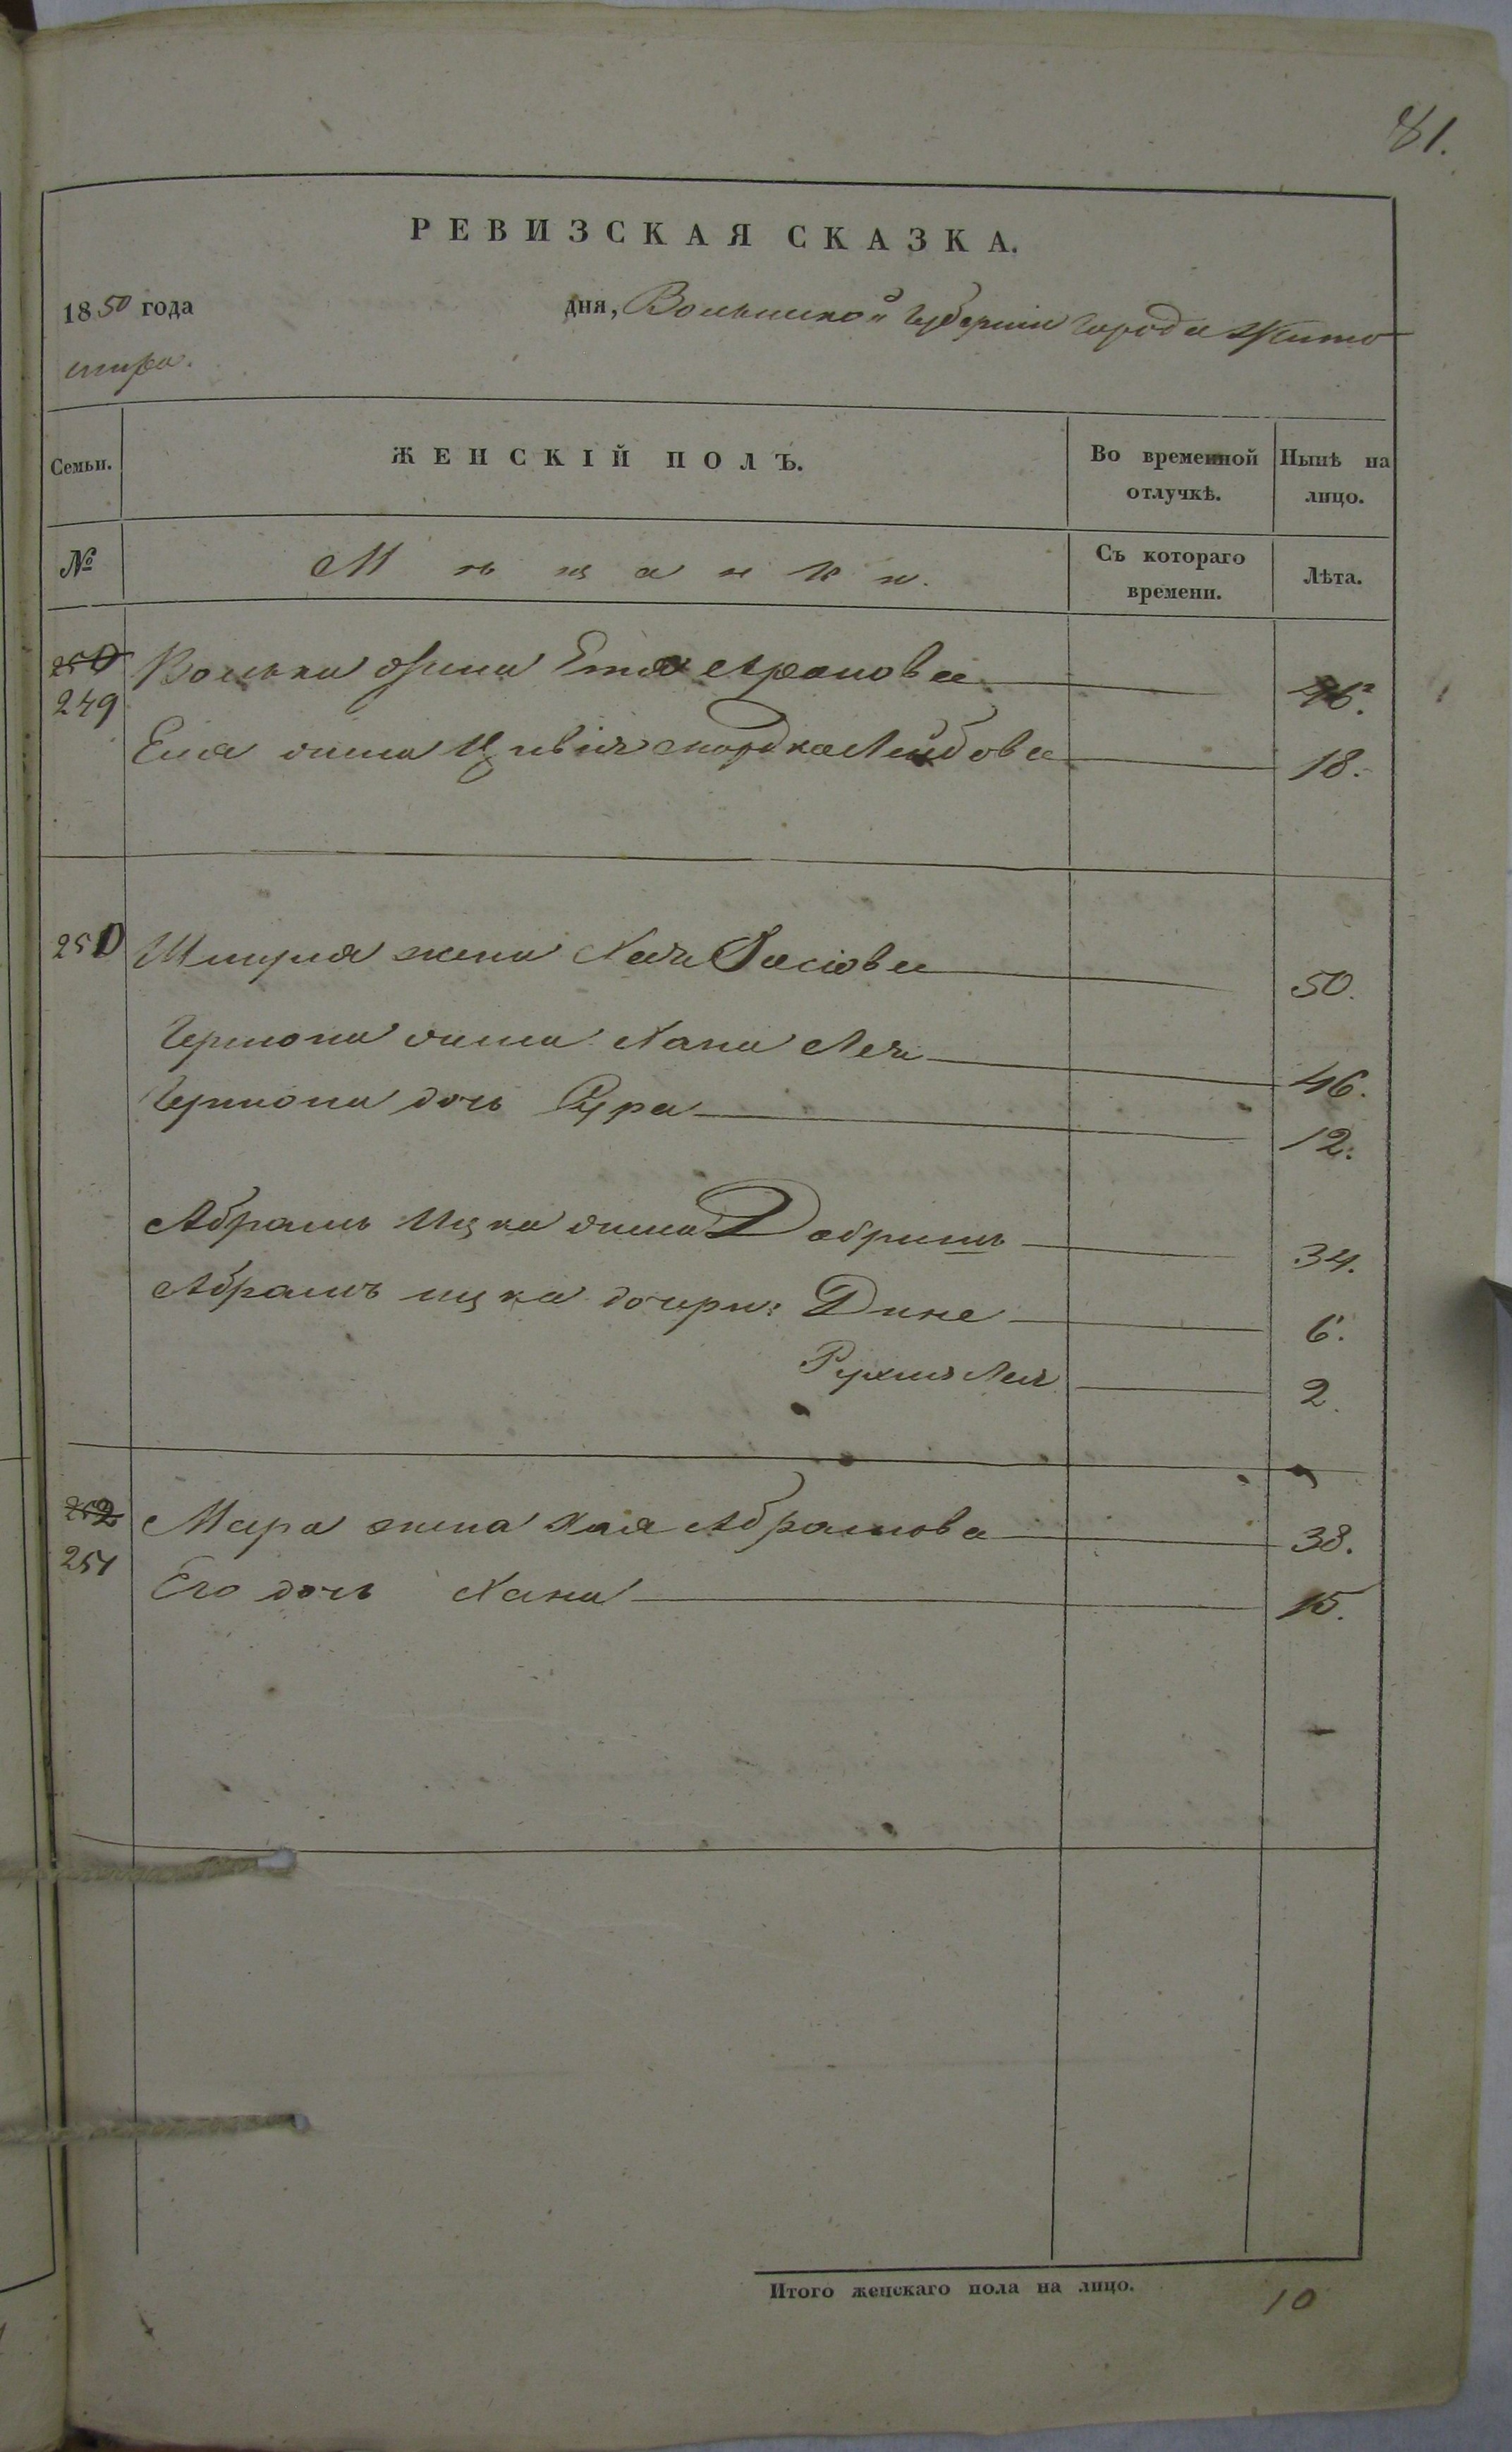 81.
РЕВИЗСКАЯ СКАЗКА.
1850 года дня, Волынской Губернии Города Жито
мира.
Семьи. ЖЕНСКІЙ ПОЛЪ. Во временной отлучкѣ. Нынѣ на лицо.
№ Мѣщанки. Съ котораго времени. Лѣта.
250
249 Волька жена Етя Ароновна 46.
Ёля жена Цивія Мордка Лейбова 18.
250 Шмуля жена Хая Іосіова 50.
Гершона жена Хана Лея 46.
Гершона дочь Сура 12.
Абрамъ Ицка жена Добришъ 34.
Абрамъ ицка дочери: Дине 6.
Рухля Лея 2.
252
251 Мера жена Хая Абрамова 38.
Его дочь Хана 15.
Итого женскаго пола на лицо. 10